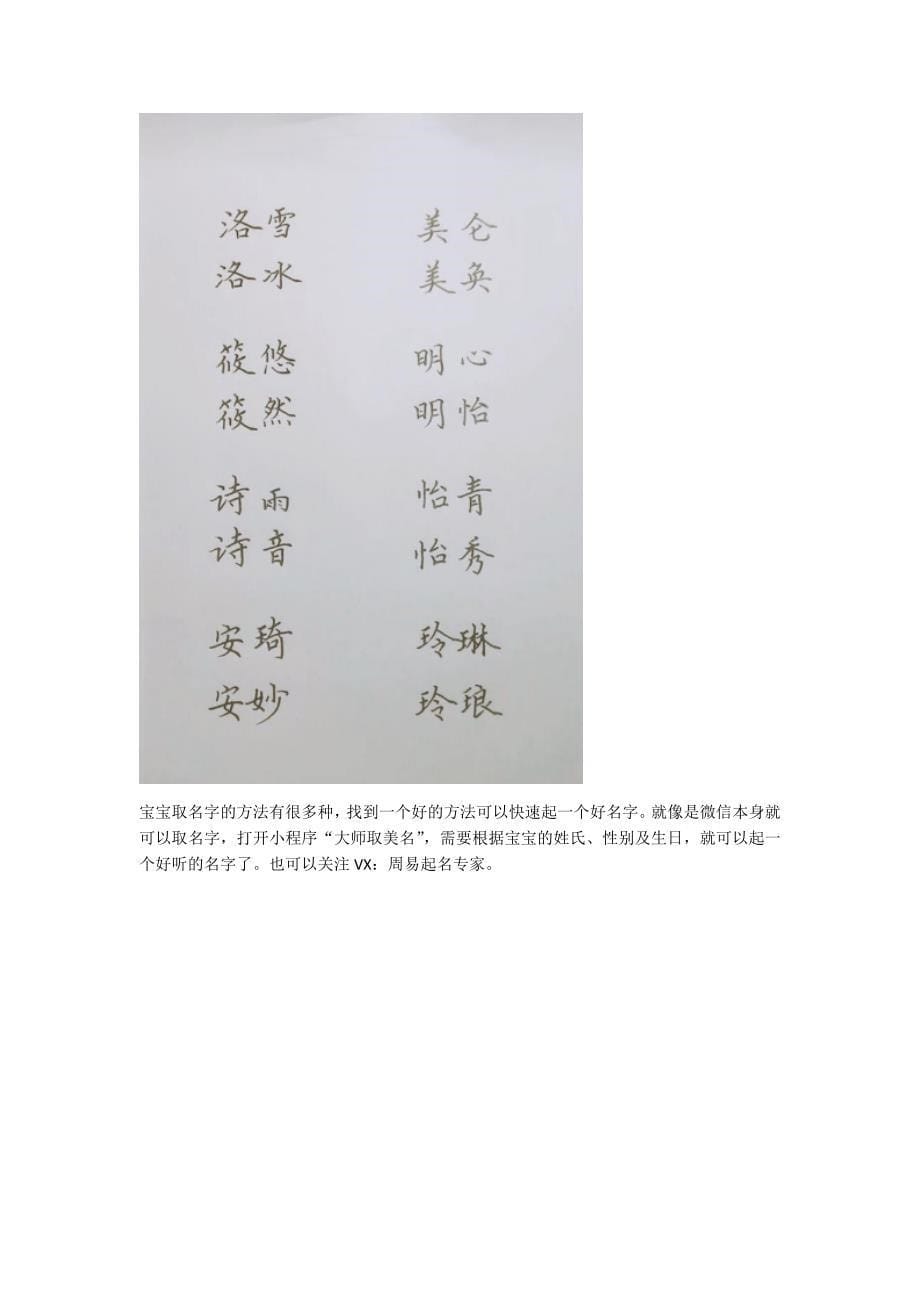 洛雪 美仑
洛冰 美奂
筱悠 明心
筱然 明怡
诗雨 怡青
诗音 怡秀
安琦 玲琳
安妙 玲琅
宝宝取名字的方法有很多种，找到一个好的方法可以快速起一个好名字。就像是微信本身就
可以取名字，打开小程序“大师取美名”，需要根据宝宝的姓氏、性别及生日，就可以起一
个好听的名字了。也可以关注 VX：周易起名专家。